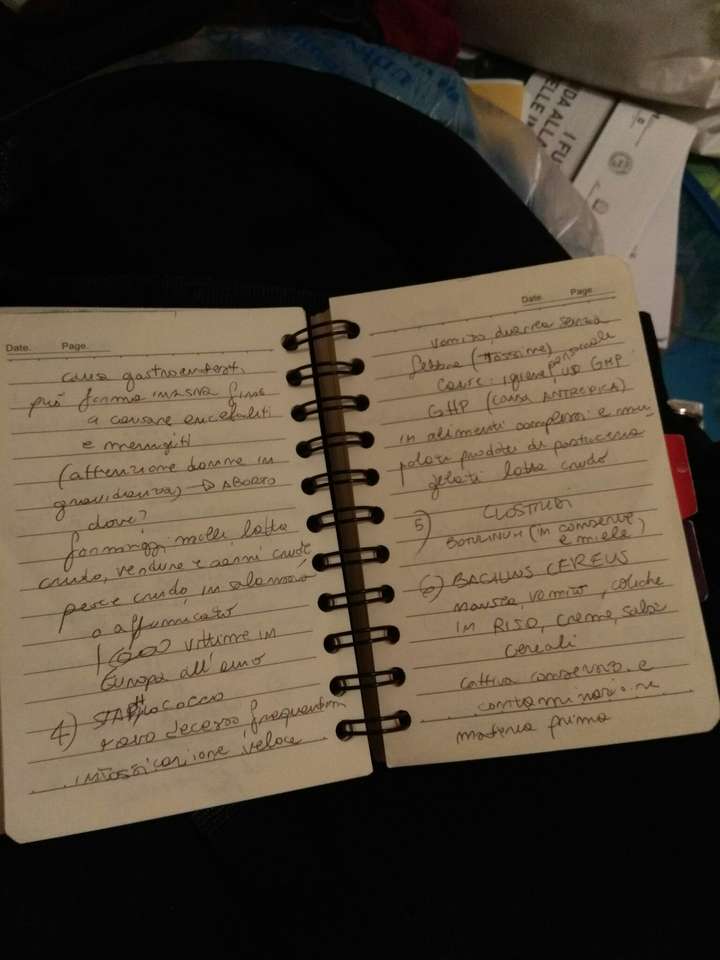 Date. Page.
causa gastroenterit.
può forma invasiva fino
a causare encefaliti
e meningiti
(attenzione donne in
gravidanza) → ABORTO
dove?
formaggi molli latte
crudo, verdure e carni crude
pesce crudo, in salamoia
o affumicato
vittime in
Europa all'anno
4) STAPHLOCOCCO
raro decesso frequentem
intossicazione veloce
Date. Page.
vomito, diarrea senza
febbre (tossine)
cause: igiene personale
GHP (causa ANTROPICA)
in alimenti complessi e mani
polati prodotti di pasticceria
gelati latte crudo
5) CLOSTRIDI
BOTULINUM (in conserve
e miele)
6) BACILLUS CEREUS
nausea, vomito, coliche
IN RISO, creme, salse
cereali
cattiva conservaz. e
contaminazione
materia prima
DA ALLA
ELLE
I FU